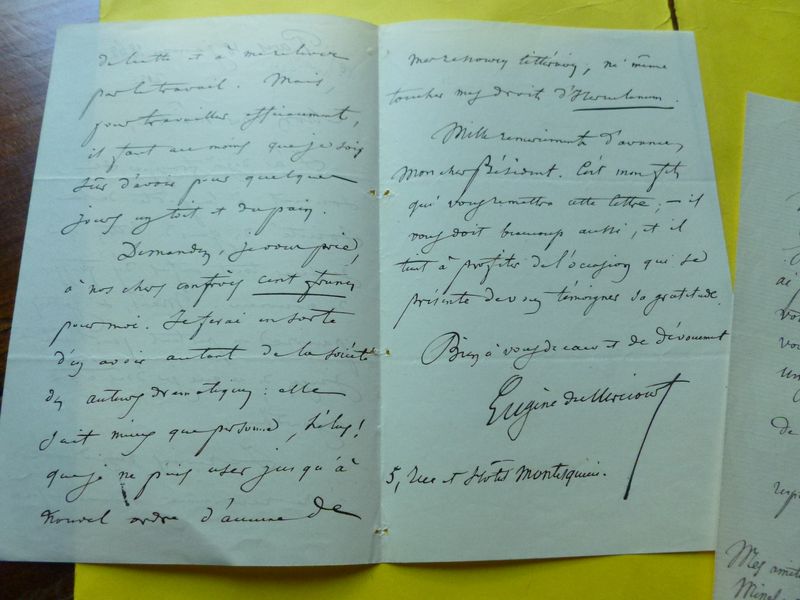 de lutte et à me relever
par le travail. Mais,
pour travailler efficacement,
il faut au moins que je sois
sûr d'avoir pour quelques
jours un toit et du pain.
Demandez, je vous prie,
à nos chers confrères cent francs
pour moi. Je ferai en sorte
d'en avoir autant de la société
des auteurs dramatiques : elle
sait mieux que personne, hélas !
que je ne puis user jusqu'à
nouvel ordre d'aucune de
mes ressources littéraires, ni même
toucher mes droits d'Herculanum.
Mille remerciements d'avance,
mon cher Président. C'est mon fils
qui vous remettra cette lettre ; – il
vous doit beaucoup aussi, et il
tient à profiter de l'occasion qui se
présente de vous témoigner sa gratitude.
Bien à vous de cœur et de dévouement
Eugène de Mirecourt
5, rue et Hôtel Montesquieu.
ai
vo
de
Mes amit